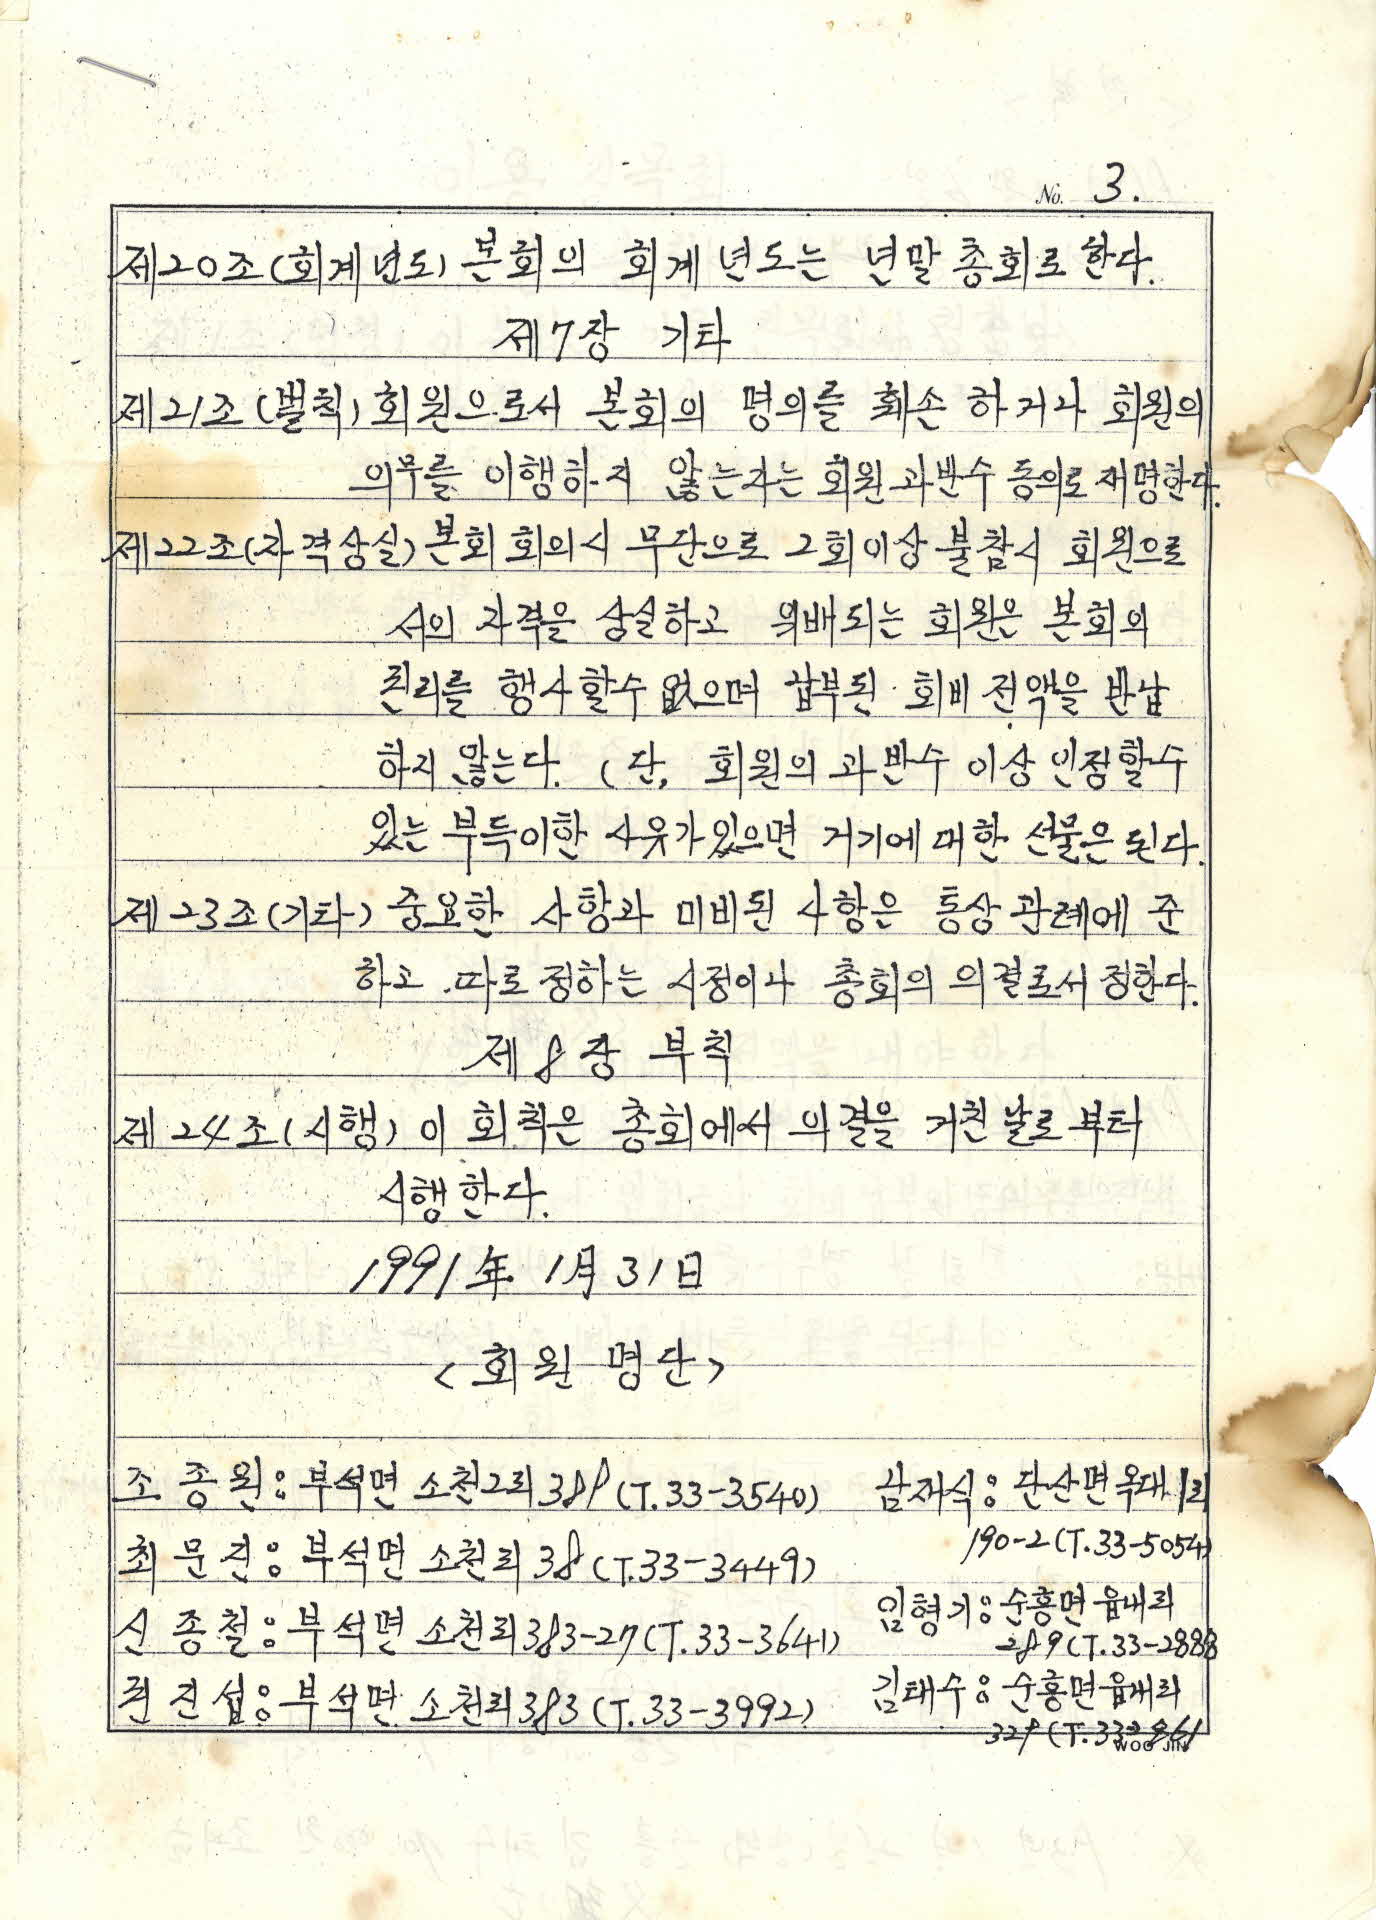 No. 3.
제20조(회계년도) 본회의 회계년도는 년말 총회로 한다.
제7장 기타
제21조(벌칙) 회원으로서 본회의 명의를 훼손 하거나 회원의
의무를 이행하지 않는자는 회원 과반수 동의로 재명한다.
제22조(자격상실) 본회 회의시 무단으로 2회이상 불참시 회원으로
서의 자격을 상실하고 위배되는 회원은 본회의
권리를 행사할수 없으며 납부된 회비 전액을 반납
하지 않는다. (단, 회원의 과반수 이상 인정할수
있는 부득이한 사유가 있으면 거기에 대한 선물은 된다.
제23조(기타) 중요한 사항과 미비된 사항은 통상관례에 준
하고 따로 정하는 시정이나 총회의 의결로서 정한다.
제8장 부칙
제24조(시행) 이 회칙은 총회에서 의결을 거친 날로 부터
시행한다.
1991年 1月 31日
<회원 명단>
조종원: 부석면 소천2리 389 (T.33-3540)
최문진: 부석면 소천리 38 (T.33-3449)
신종철: 부석면 소천리 383-27 (T.33-3641)
권진섭: 부석면 소천리 383 (T.33-3992)
재식: 단산면 옥대1리
190-2 (T.33-5054)
임형기: 순흥면 읍내리
289 (T.33-2888
김태수: 순흥면 읍내리
329 (T.33-
WOO JIN